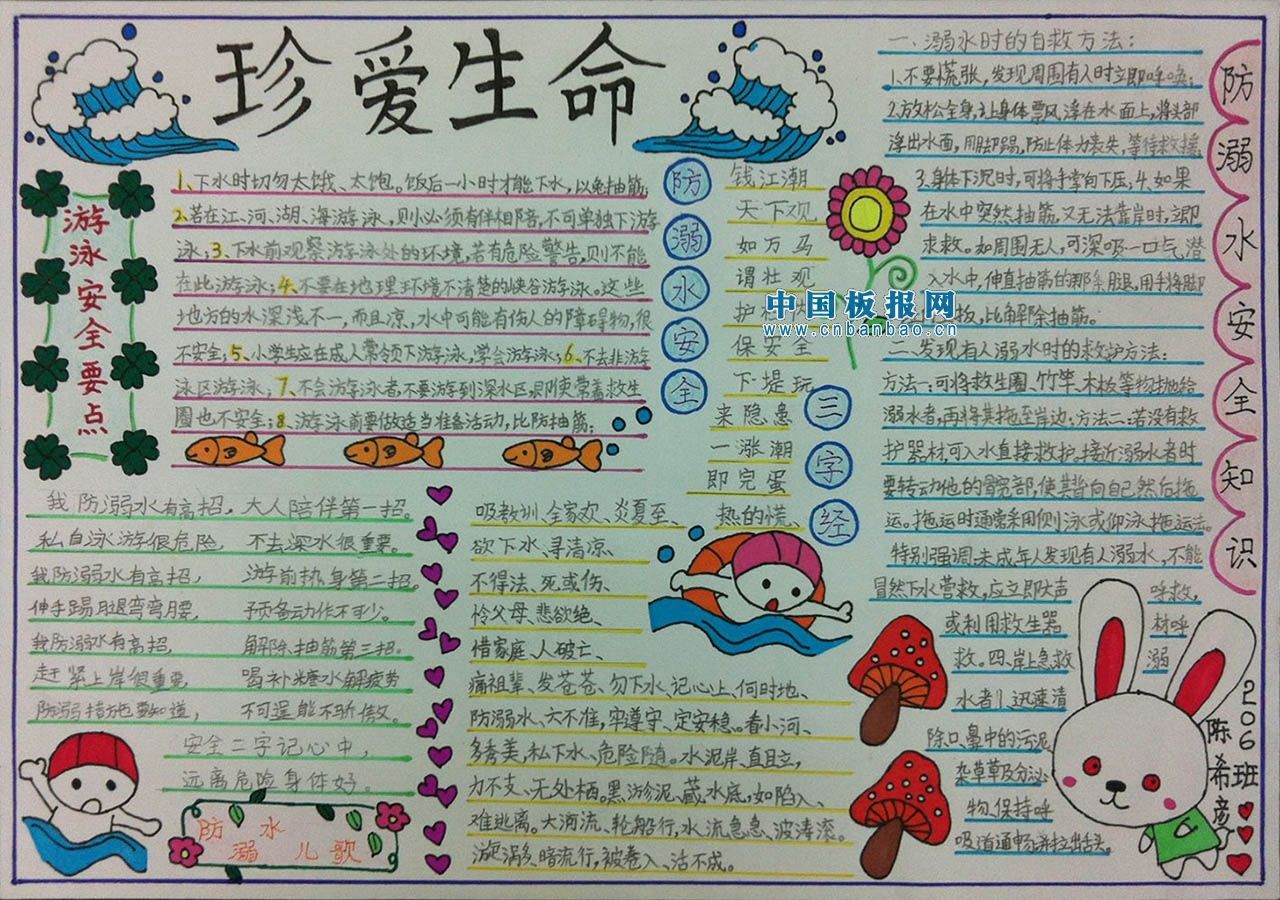 珍爱生命
游泳安全要点
1、下水时切勿太饿、太饱。饭后一小时才能下水，以兔抽筋；
2、若在江、河、湖、海游泳，则必须有伴相陪，不可单独下游
泳；3、下水前观察游泳处的环境，若有危险警告，则不能
在此游泳；4、不要在地理环境不清楚的峡谷游泳。这些
地方的水深浅不一，而且凉，水中可能有伤人的障碍物，很
不安全；5、小学生应在成人带领下游泳，学会游泳；6、不去非游
泳区游泳；7、不会游泳者，不要游到深水区，即使带着救生
圈也不安全；8、游泳前要做适当准备活动，比防抽筋；
防溺水安全
三字经
钱江潮
天下观
如万马
谓壮观
护
保安全
下堤玩
来隐患
一涨潮
即完蛋
吸教训、全家欢、炎夏至、热的慌、
欲下水、寻清凉、
不得法、死或伤、
怜父母、悲欲绝、
惜家庭、人破亡、
痛祖辈、发苍苍、勿下水、记心上、何时地、
防溺水、六不准，牢遵守、定安稳。看小河、
多秀美，私下水、危险随。水泥岸、直且立，
力不支、无处栖。黑淤泥、藏水底，如陷入、
难逃离。大河流、轮船行，水流急急、波涛滚。
漩涡多、暗流行，被卷入、活不成。
我防溺水有高招，大人陪伴第一招。
私自泳游很危险，不去深水很重要。
我防溺水有高招，游前热身第二招。
伸手踢腿弯弯腰，预备动作不可少。
我防溺水有高招，解除抽筋第三招。
赶紧上岸很重要，喝补糖水解疲劳
防溺措施要知道，不可逞能不骄傲。
安全二字记心中，
远离危险身体好。
防溺水儿歌
防溺水安全知识
一、溺水时的自救方法：
1、不要慌张，发现周围有人时立即呼唤；
2、放松全身，让身体票风浮在水面上，将头部
浮出水面，用脚踢，防止体力丧失，等待救援，
3、身体下沉时，可将手掌向下压；4、如果
在水中突然抽筋，又无法靠岸时，立即
求救。如周围无人，可深吸一口气，潜
入水中，伸直抽筋的那条腿，用手将脚
板，比解除抽筋。
二、发现有人溺水时的救护方法：
方法一：可将救生圈、竹竿、木板等物抛给
溺水者，再将其拖至岸边；方法二：若没有救
护器材，可入水直接救护。接近溺水者时
要转动他的髋部，使其背向自己然后拖
运。拖运时通常采用侧泳或仰泳拖运法。
特别强调：未成年人发现有人溺水，不能
冒然下水营救，应立即大声呼救，
或利用救生器材呼
救。四、岸上急救溺
水者1、迅速清
除口、鼻中的污泥、
杂草草及分泌
物，保持呼
吸道通畅，并拉出舌头。
206班
陈希彦
中国板报网
www.cnbanbao.cn